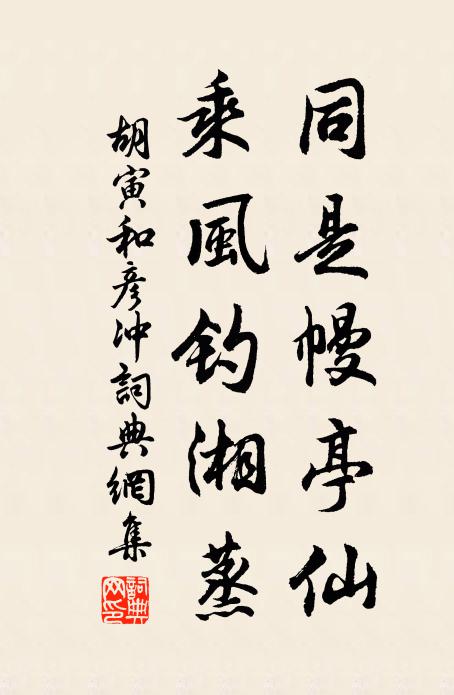 同是幔亭仙
乘風釣湘蒸
胡寅和彥冲詞典網集
詞典网印